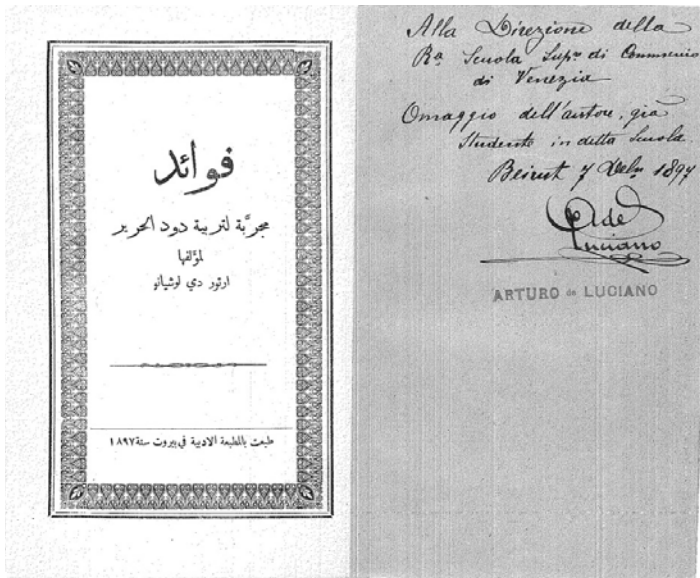 فوائد
مجرَّبة لتربية دود الحرير
لمؤلفها
ارتور دي لوشيانو
طبعت بالمطبعة الادبية في بيروت سنة ١٨٩٧
Alla Direzione della
Ra Scuola Supre di Commercio
di Venezia
Omaggio dell'autore, già
Studente in detta Scuola.
Beirut 7 1897
Luciano
ARTURO de LUCIANO